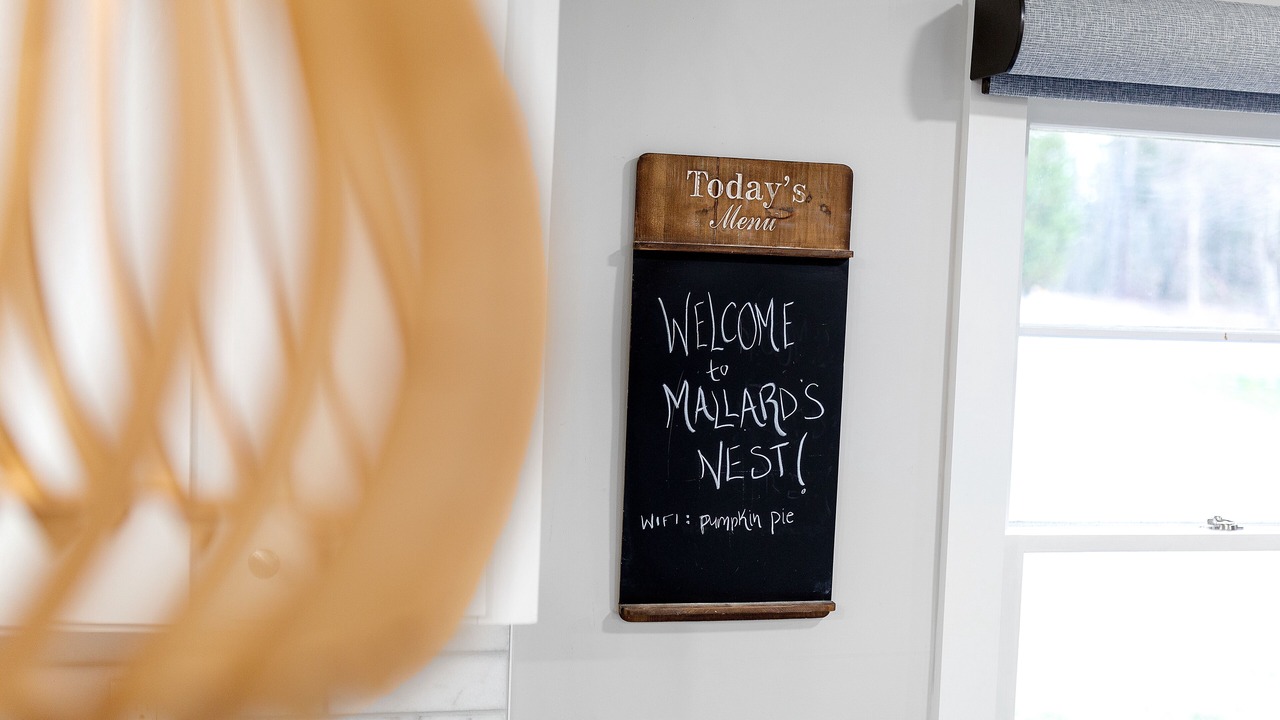 Today's
Menu
WELCOME
to
MALLARD'S
NEST!
WIFI: pumpkin pie